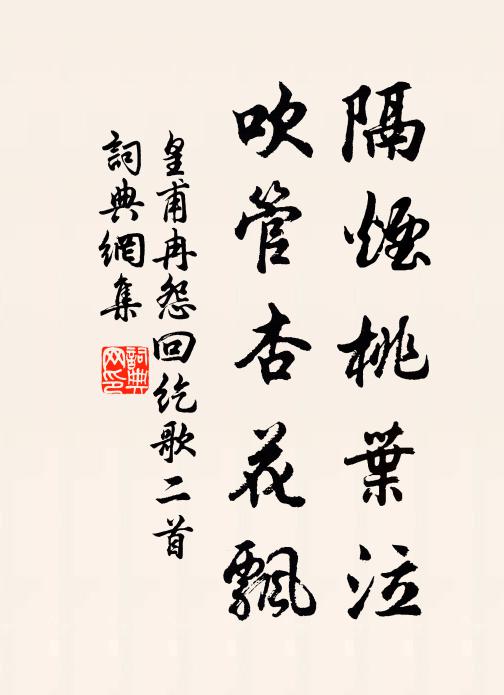 隔煙桃葉泣
吹管杏花飄
皇甫冉怨回紇歌二首
詞典網集
詞典网印